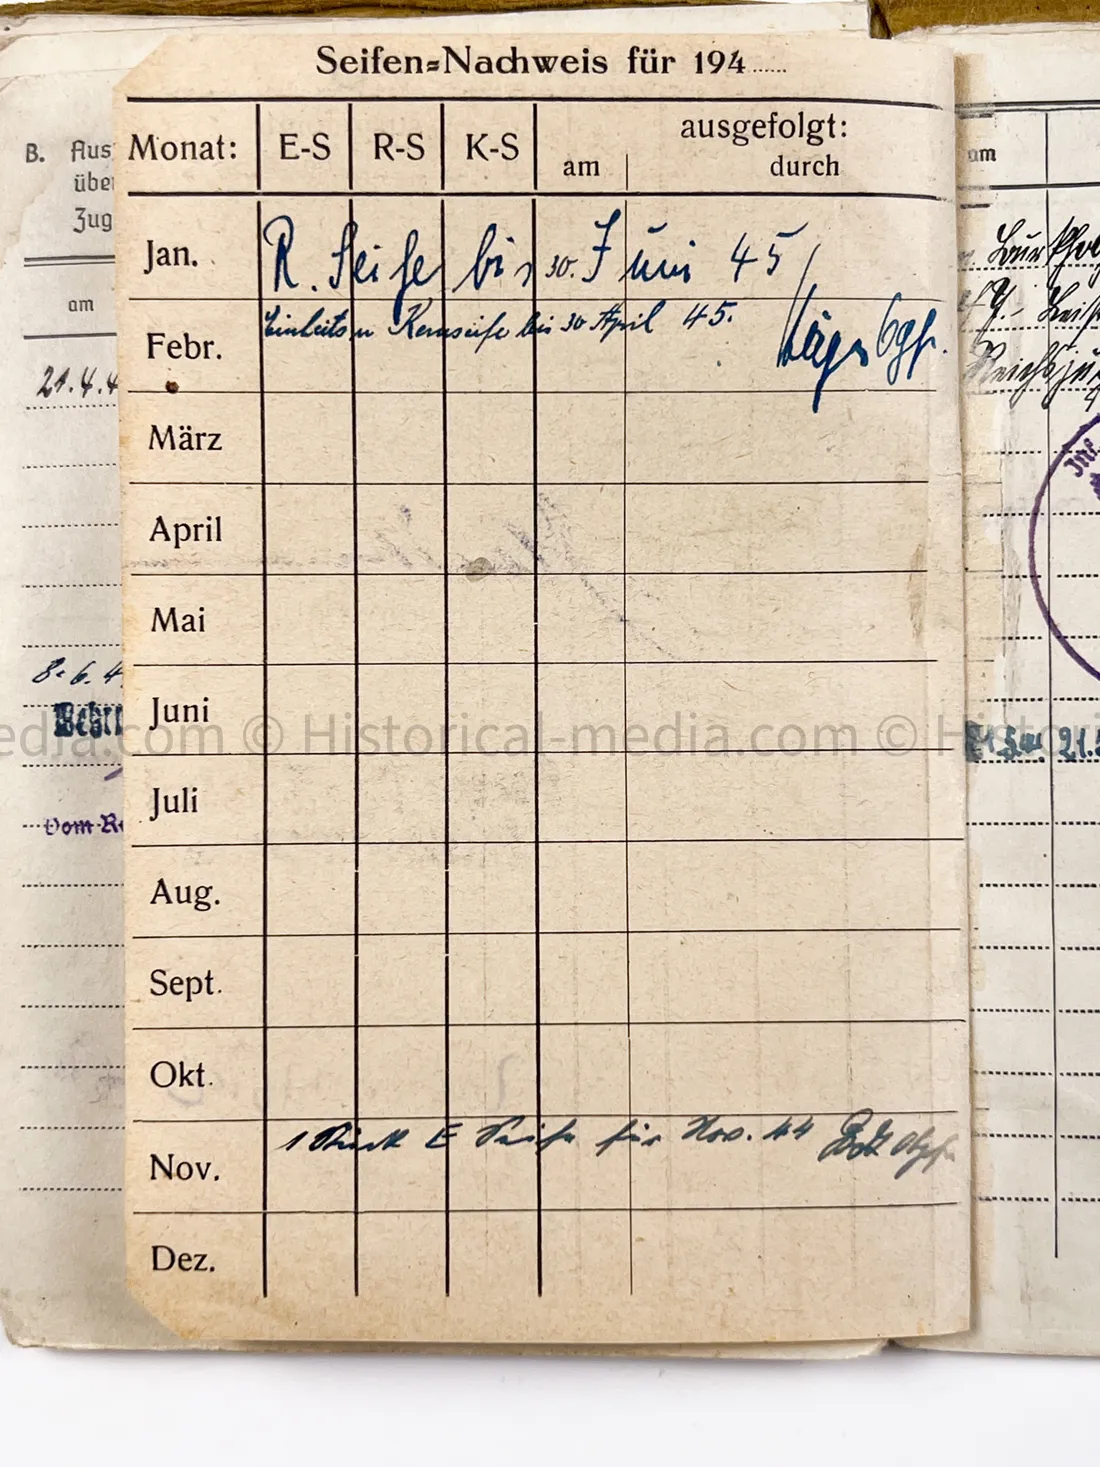 Seifen-Nachweis für 194......
Monat: E-S R-S K-S ausgefolgt:
am durch
Jan. R. Seife bis 30. Juni 45
Febr. Einheits u Kernseife bis 30 April 45.
März
April
Mai
Juni
Juli
Aug.
Sept.
Okt.
Nov. 1 Stück E Seife für Nov. 44
Dez.
B. Aus
über
Zug
am
21.4.4
8.6.4
Vom R
am
21.5.
© Historical-media.com ©